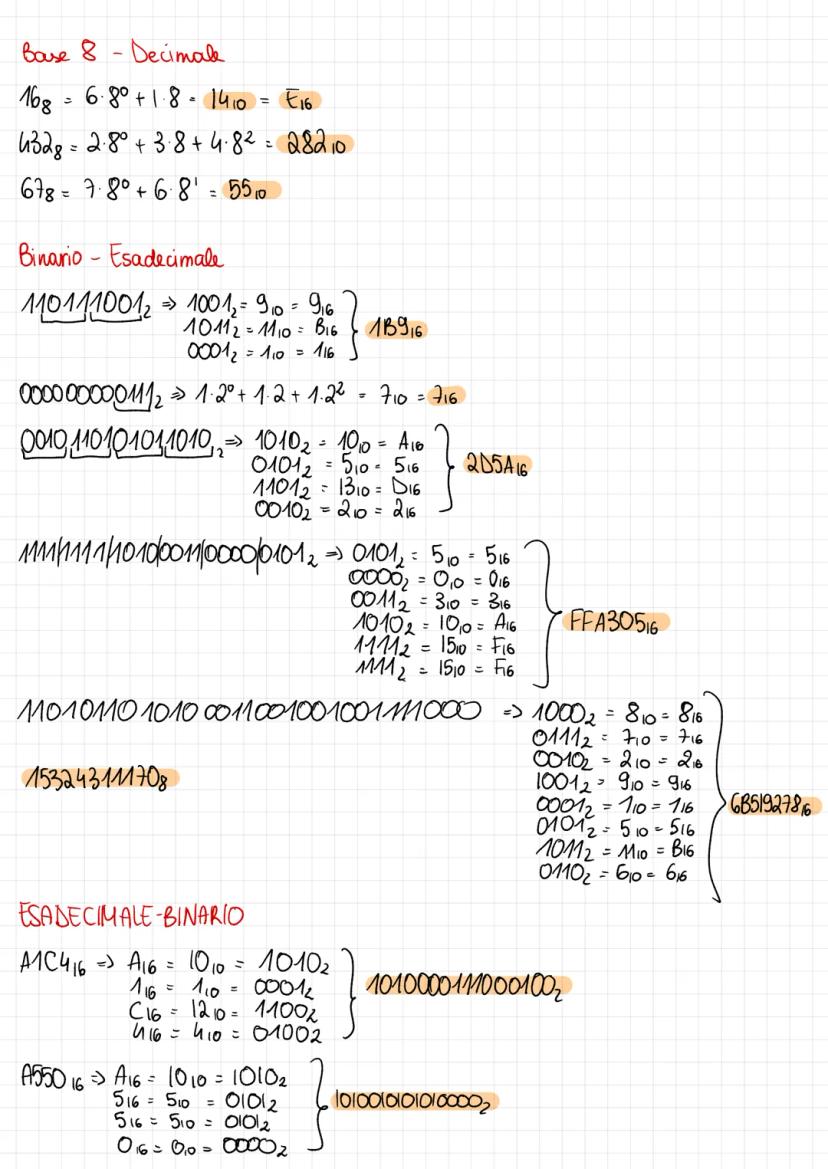 Base 8 - Decimale
16₈ = 6·8⁰ + 1·8 = 14₁₀ = E₁₆
432₈ = 2·8⁰ + 3·8 + 4·8² = 282₁₀
67₈ = 7·8⁰ + 6·8¹ = 55₁₀
Binario - Esadecimale
110111001₂ => 1001₂ = 9₁₀ = 9₁₆
1011₂ = 11₁₀ = B₁₆
0001₂ = 1₁₀ = 1₁₆
1B9₁₆
000000000111₂ => 1·2⁰ + 1·2 + 1·2² = 7₁₀ = 7₁₆
0010110101011010₂ => 1010₂ = 10₁₀ = A₁₆
0101₂ = 5₁₀ = 5₁₆
1101₂ = 13₁₀ = D₁₆
0010₂ = 2₁₀ = 2₁₆
2D5A₁₆
1111|1111|1010|0011|0000|0101₂ => 0101₂ = 5₁₀ = 5₁₆
0000₂ = 0₁₀ = 0₁₆
0011₂ = 3₁₀ = 3₁₆
1010₂ = 10₁₀ = A₁₆
1111₂ = 15₁₀ = F₁₆
1111₂ = 15₁₀ = F₁₆
FFA305₁₆
1101011010100011001001001111000 => 1000₂ = 8₁₀ = 8₁₆
0111₂ = 7₁₀ = 7₁₆
0010₂ = 2₁₀ = 2₁₆
1001₂ = 9₁₀ = 9₁₆
0001₂ = 1₁₀ = 1₁₆
0101₂ = 5₁₀ = 5₁₆
1011₂ = 11₁₀ = B₁₆
0110₂ = 6₁₀ = 6₁₆
6B519278₁₆
15324311170₈
ESADECIMALE-BINARIO
A1C4₁₆ => A₁₆ = 10₁₀ = 1010₂
1₁₆ = 1₁₀ = 0001₂
C₁₆ = 12₁₀ = 1100₂
4₁₆ = 4₁₀ = 0100₂
1010000111000100₂
A550₁₆ => A₁₆ = 10₁₀ = 1010₂
5₁₆ = 5₁₀ = 0101₂
5₁₆ = 5₁₀ = 0101₂
0₁₆ = 0₁₀ = 0000₂
1010010101010000₂